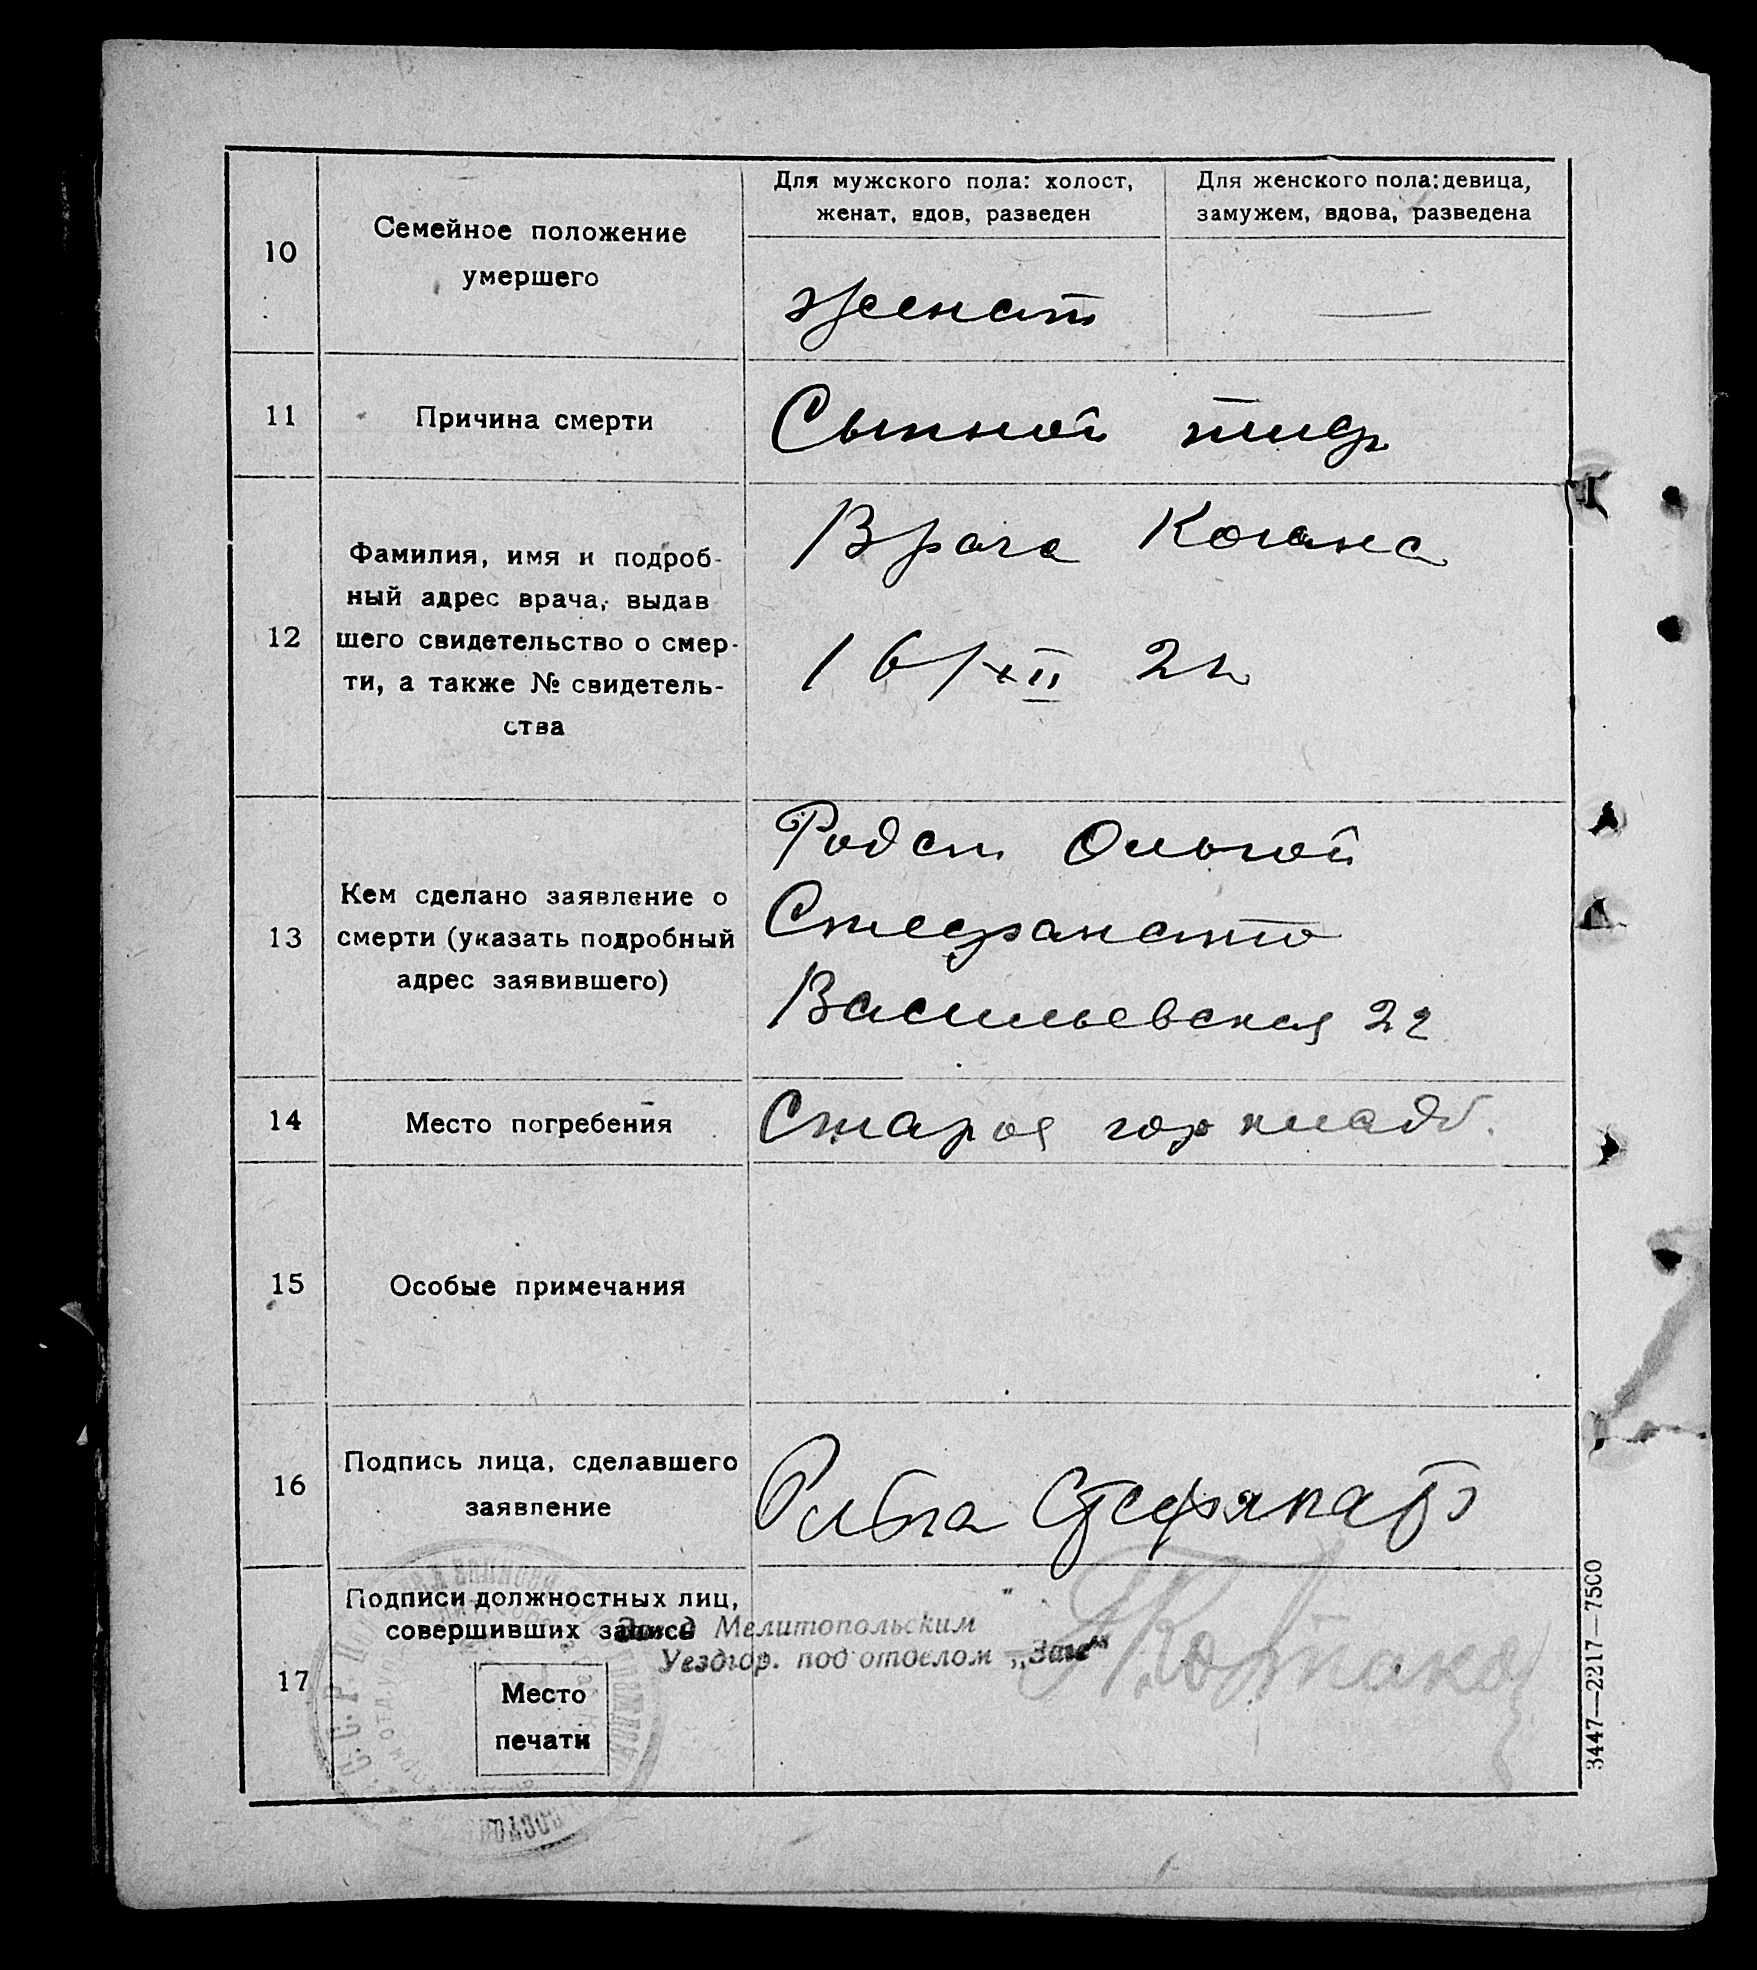 10
Семейное положение
умершего
Для мужского пола: холост,
женат, вдов, разведен
Для женского пола: девица,
замужем, вдова, разведена
женат
—
11
Причина смерти
Сыпной тиф
12
Фамилия, имя и подроб-
ный адрес врача, выдав
шего свидетельство о смер-
ти, а также № свидетель-
ства
Врача Когана
16/XII 22
13
Кем сделано заявление о
смерти (указать подробный
адрес заявившего)
Родст Ольгой
Стефанато
Васильевская 22
14
Место погребения
Старое гор кладб.
15
Особые примечания
16
Подпись лица, сделавшего
заявление
Стефанато
17
Подписи должностных лиц,
совершивших запись
Место
печати
Завед Мелитопольским
Уездгор. под'отделом „Загс“
3447—2217—7500